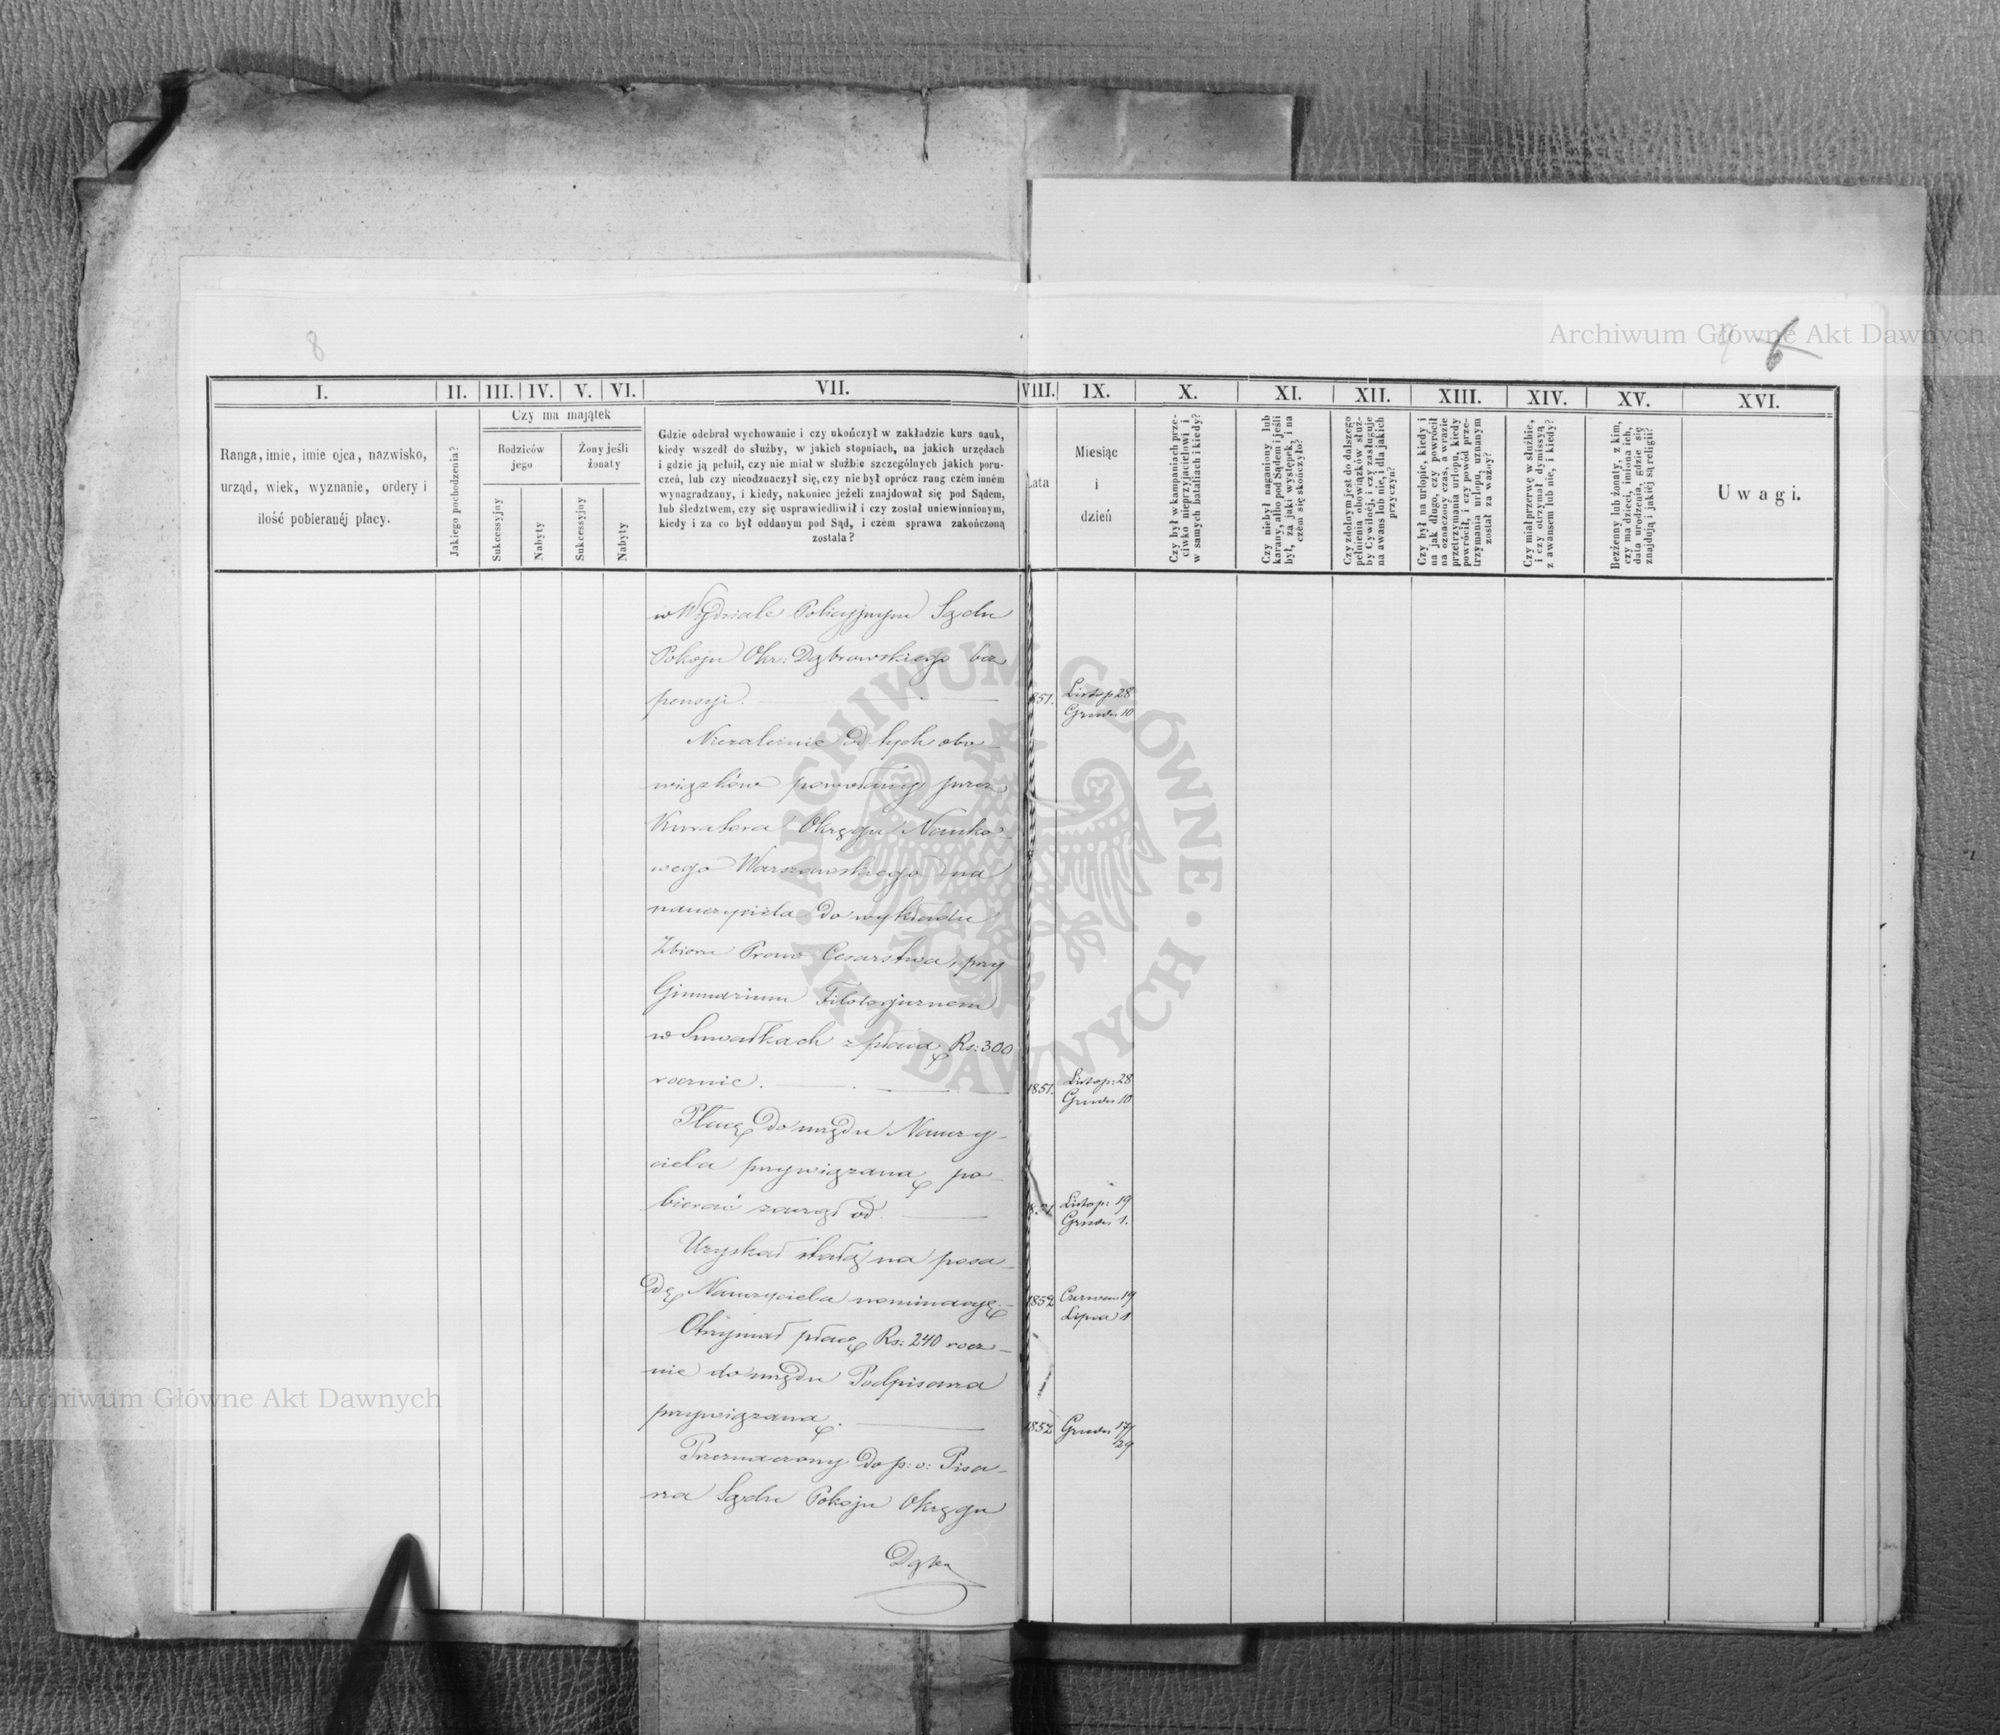 8
Archiwum Główne Akt Dawnych
6
I.
II.
III.
IV.
V.
VI.
VII.
VIII.
IX.
X.
XI.
XII.
XIII.
XIV.
XV.
XVI.
Ranga, imie, imie ojca, nazwisko,
urząd, wiek, wyznanie, ordery i
ilość pobieranéj płacy.
Jakiego pochodzenia?
Czy ma majątek
Rodziców
jego
Żony jeśli
żonaty
Sukcessyjny
Nabyty
Sukcessyjny
Nabyty
Gdzie odebrał wychowanie i czy ukończył w zakładzie kurs nauk,
kiedy wszedł do służby, w jakich stopniach, na jakich urzędach
i gdzie ją pełnił, czy nie miał w służbie szczególnych jakich poru-
czeń, lub czy nieodznaczył się, czy nie był oprócz rang czém inném
wynagradzany, i kiedy, nakoniec jeżeli znajdował się pod Sądem,
lub śledztwem, czy się usprawiedliwił i czy został uniewinnionym,
kiedy i za co był oddanym pod Sąd, i czém sprawa zakończoną
została?
Lata
Miesiąc
i
dzień
Czy był w kampaniach prze-
ciwko nieprzyjacielowi i
w samych bataliach i kiedy?
Czy niebył naganiony lub
karany, albo pod Sądem i jeśli
był, za jaki występek, i na
czém się skończyło?
Czy zdolnym jest do dalszego
pełnienia obowiązków służ-
by Cywilnéj, i czy zasługuje
na awans lub nie, i dla jakich
przyczyn?
Czy był na urlopie, kiedy i
na jak długo, czy powrócił
na oznaczony czas, a w razie
przetrzymania urlopu, kiedy
powrócił, i czy powód prze-
trzymania urlopu, uznanym
został za ważny?
Czy miał przerwę w służbie,
i czy otrzymał dymissyą
z awansem lub nie, i kiedy?
Bezżenny lub żonaty, z kim,
czy ma dzieci, imiona ich,
data urodzenia, gdzie się
znajdują i jakiéj są religii?
Uwagi.
w Wydziale Policyjnym Sądu
Pokoju Okr: Dąbrowskiego bez
pensyi.
851. Listop 28
Grudn 10
Niezależnie od tych obo-
wiązków powołany przez
Kuratora Okręgu Nauko-
wego Warszawskiego na
nauczyciela do wykładu
Zbioru Praw Cesarstwa, przy
Gimnazium Filologicznem
w Suwałkach z płacą Rs: 300
rocznie.
1851. Listop: 28
Grudn 10
Płacę do urzędu Nauczy-
ciela przywiązaną po-
bierać zaczął od.
Listop: 19
Grudn 1.
Uzyskał stałą na posa-
dę Nauczyciela nominacyę.
1852 Czerwca 19
Lipca 1
Otrzymał płacę Rs: 240 rocz-
nie do urzędu Podpisarza
przywiązaną.
1852 Grudn 17/29
Przeznaczony do p: o: Pisa-
rza Sądu Pokoju Okręgu
Archiwum Główne Akt Dawnych
ARCHIWUM GŁÓWNE AKT DAWNYCH